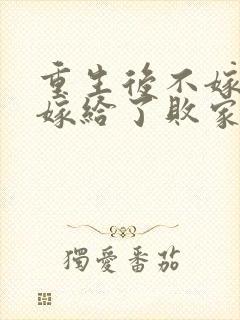 重生後不嫁
嫁給了敗家
獨愛番茄